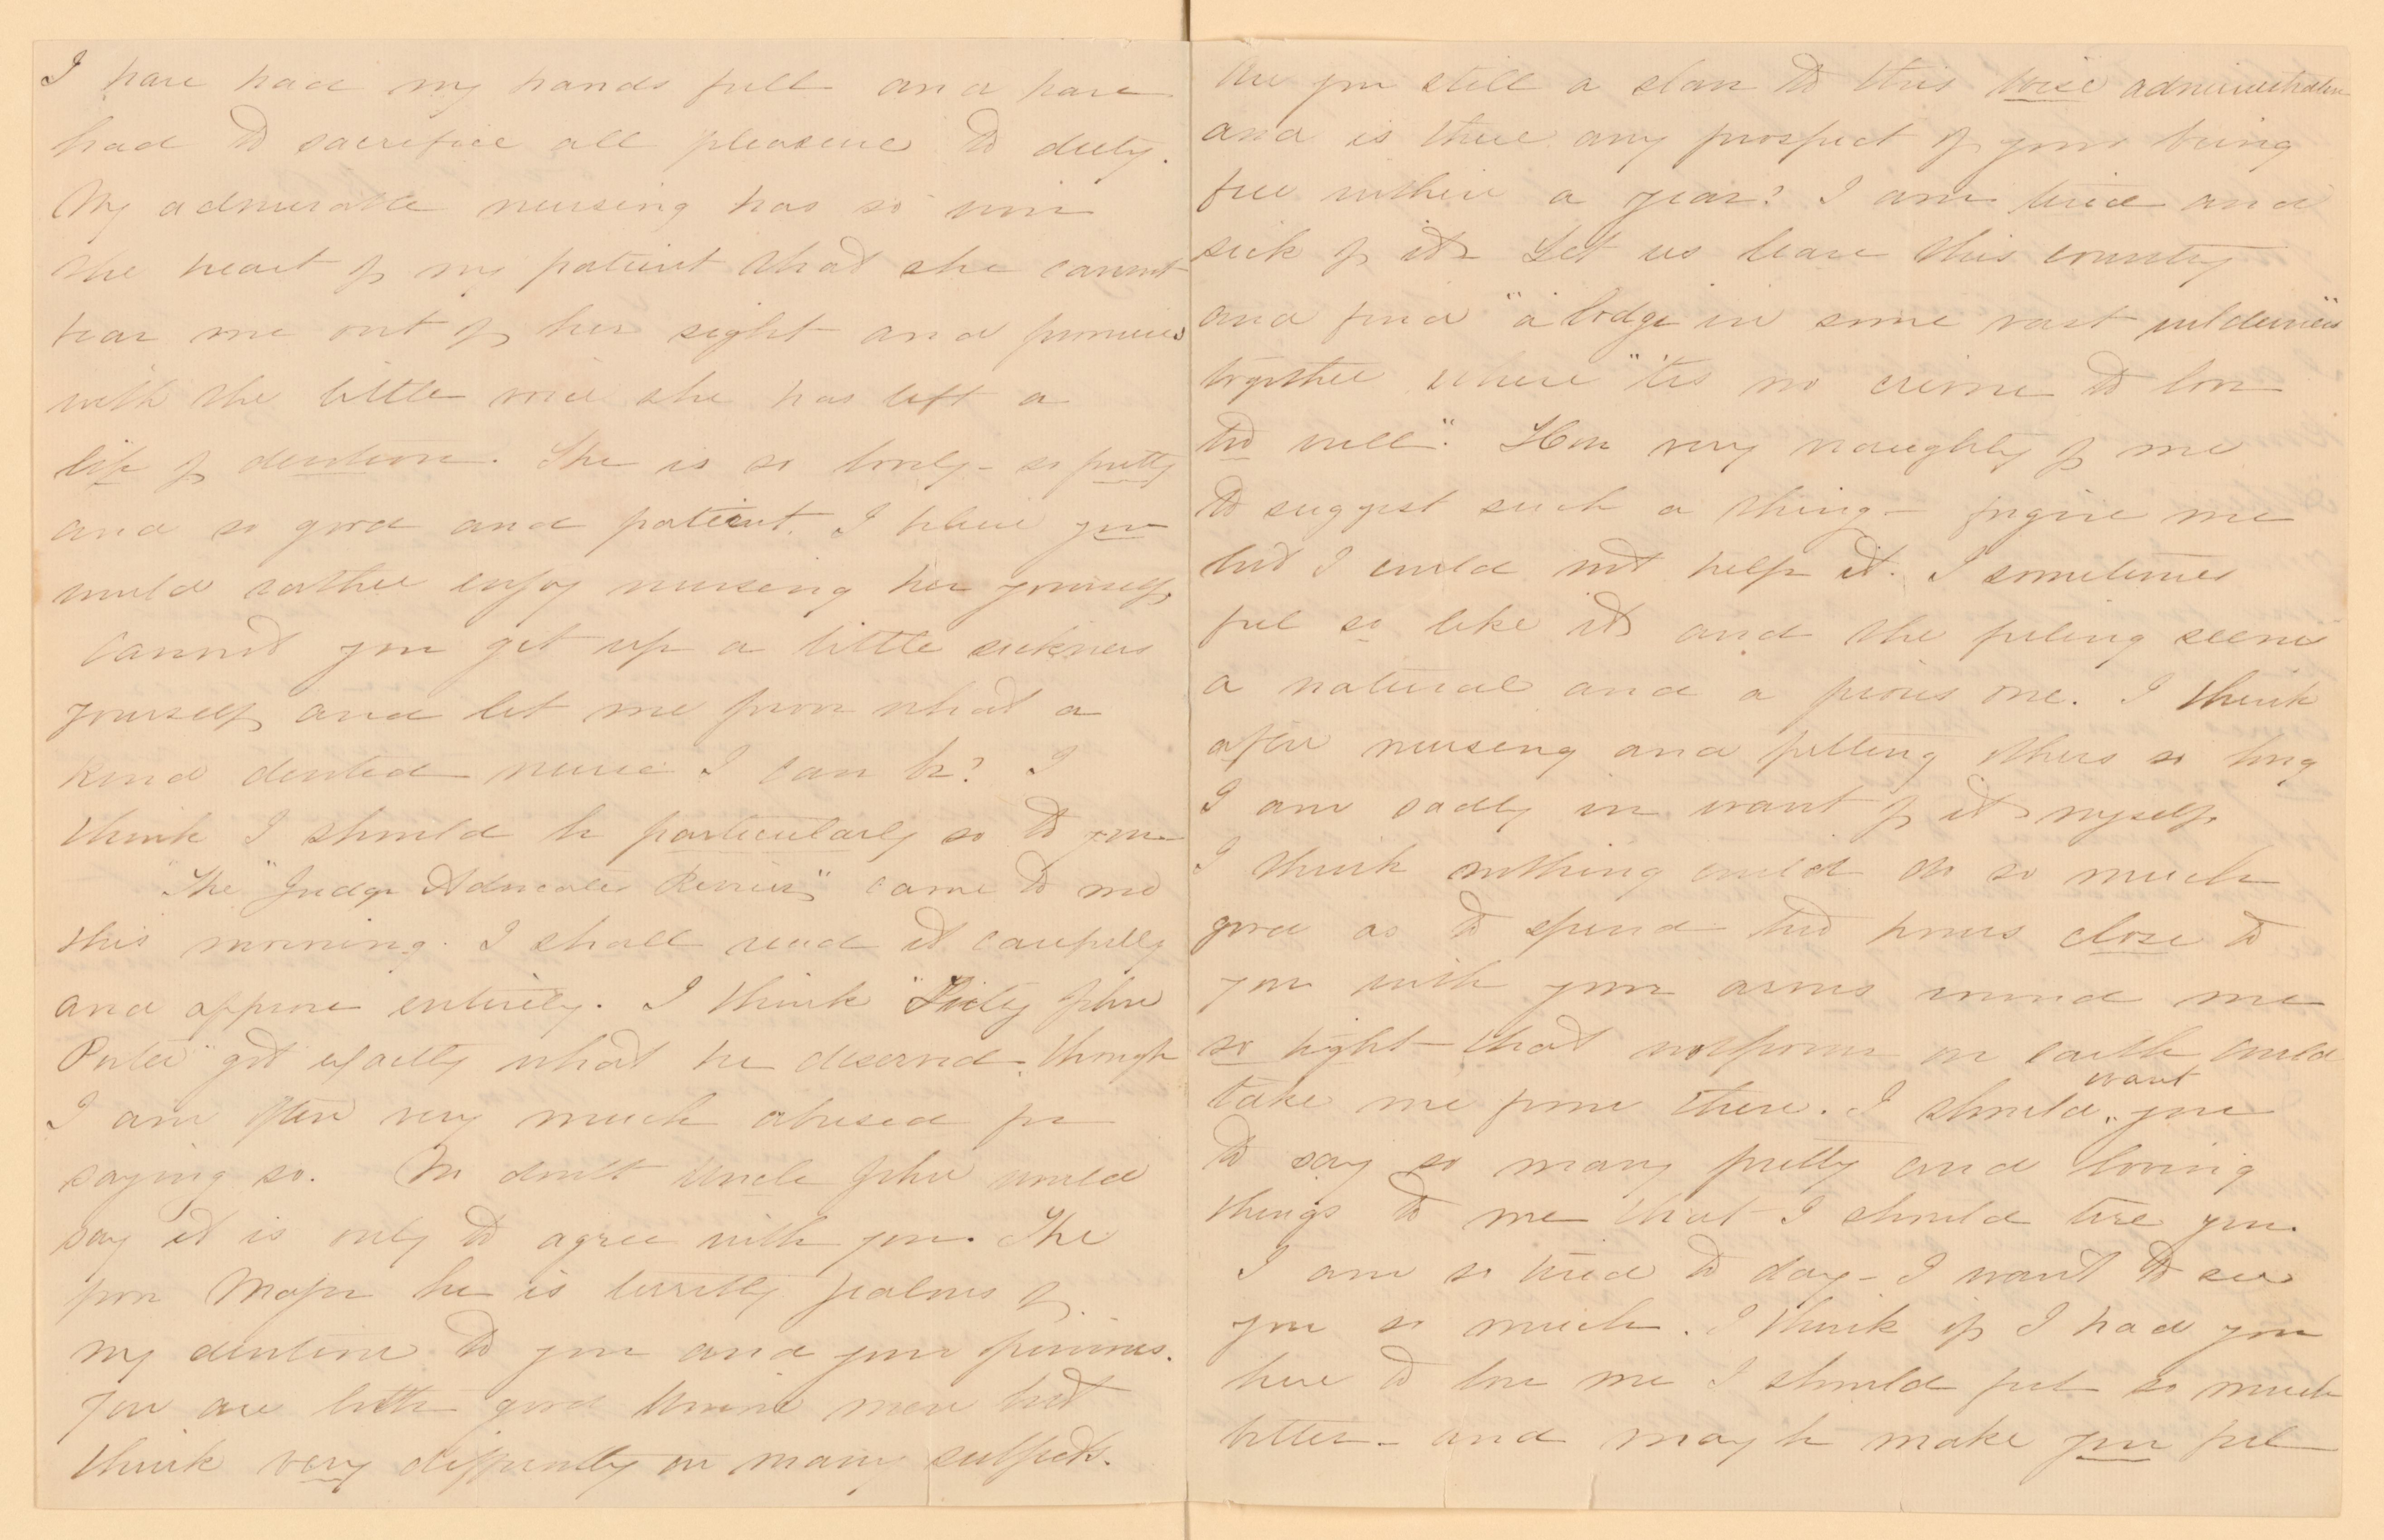 I have had my hands full and have
had to sacrifice all pleasure to duty.
My admirable nursing has so won
the heart of my patient that she cannot
bear me out of her sight and promises
with the little voice she has left a
life of devotion. She is so lovely - so pretty
and so good and patient. I believe you
would rather enjoy nursing her yourself.
Cannot you get up a little sickness
yourself and let me prove what a
kind devoted nurse I can be? I
think I should be particularly so to you
"The "Judge Advocates Review" came to me
this morning. I shall read it carefully
and approve entirely. I think "Fitz John
Porter" got exactly what he deserved, though
I am often very much abused for
saying so. No doubt Uncle John would
say it is only to agree with you. The
poor Major he is terribly jealous of
my devotion to you and your opinions.
You are both good Union men but
think very differently on many subjects.
Are you still a slave to this wise administration
and is there any prospect of your being
free within a year? I am tired and
sick of it. Let us leave this country
and find "a lodge in some vast wilderness"
together where "'tis no crime to love
too well". How very naughty of me
to suggest such a thing - forgive me
but I could not help it. I sometimes
feel so like it and the feeling seems
a natural and a pious one. I think
after nursing and petting others so long
I am sadly in want of it myself.
I think nothing could do so much
good as to spend two hours close to
you with your arms round me
so tight that no power on earth could
take me from there. I should want you
to say so many pretty and loving
things to me that I should tire you.
I am so tired to day - I want to see
you so much. I think if I had you
here to love me I should feel so much
better - and may be make you feel